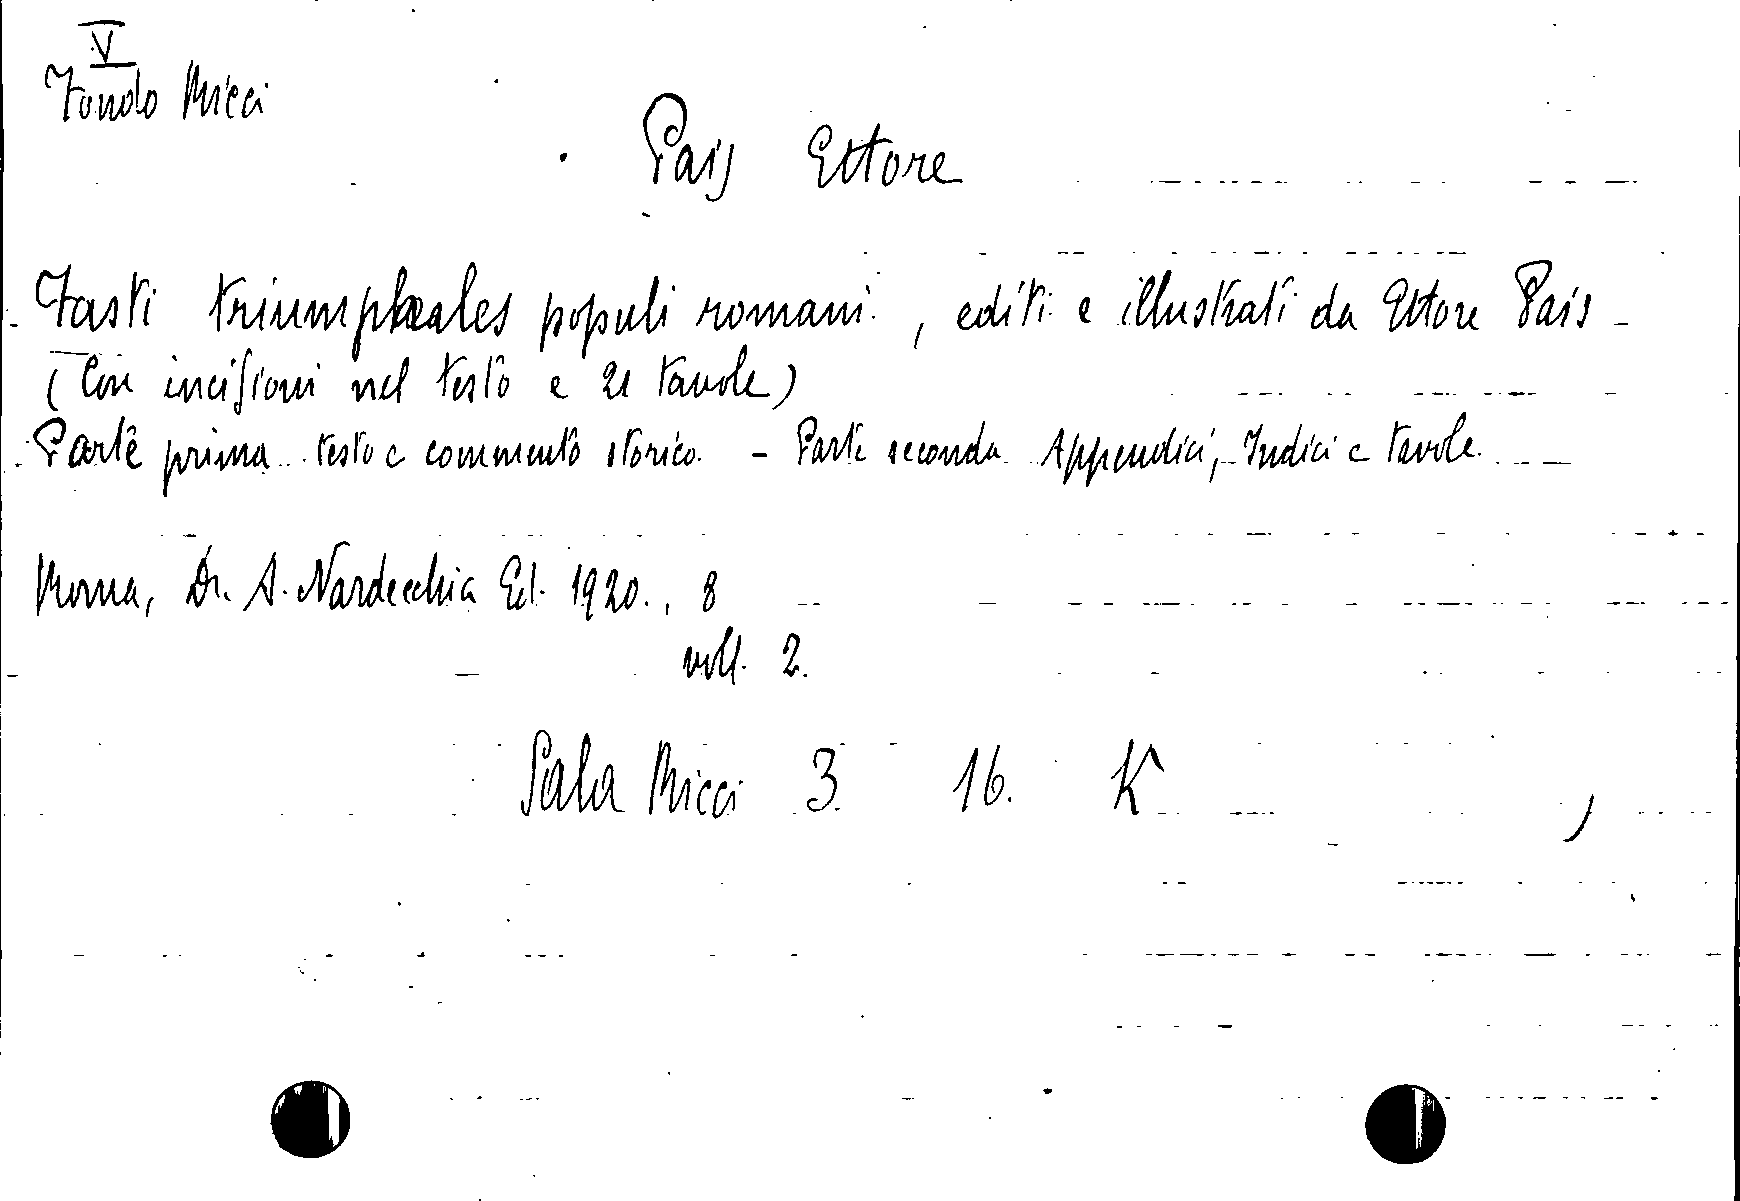 V
Fondo Ricci
Pais Ettore
Fasti triumphales populi romani, editi e illustrati da Ettore Pais -
(Con incisioni nel testo e 21 tavole)
Parte prima testo e commento storico. - Parte seconda Appendici, Indici e tavole.
Roma, Dr. A. Nardecchia Ed. 1920., 8
voll. 2.
Sala Ricci 3. 16. K